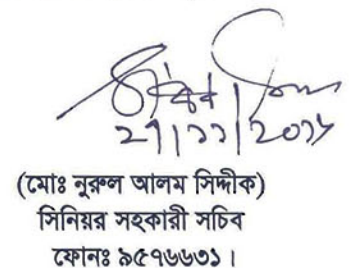 ২৭|১১|২০১৮
(মোঃ নুরুল আলম সিদ্দীক)
সিনিয়র সহকারী সচিব
ফোনঃ ৯৫৭৬৬৩১।